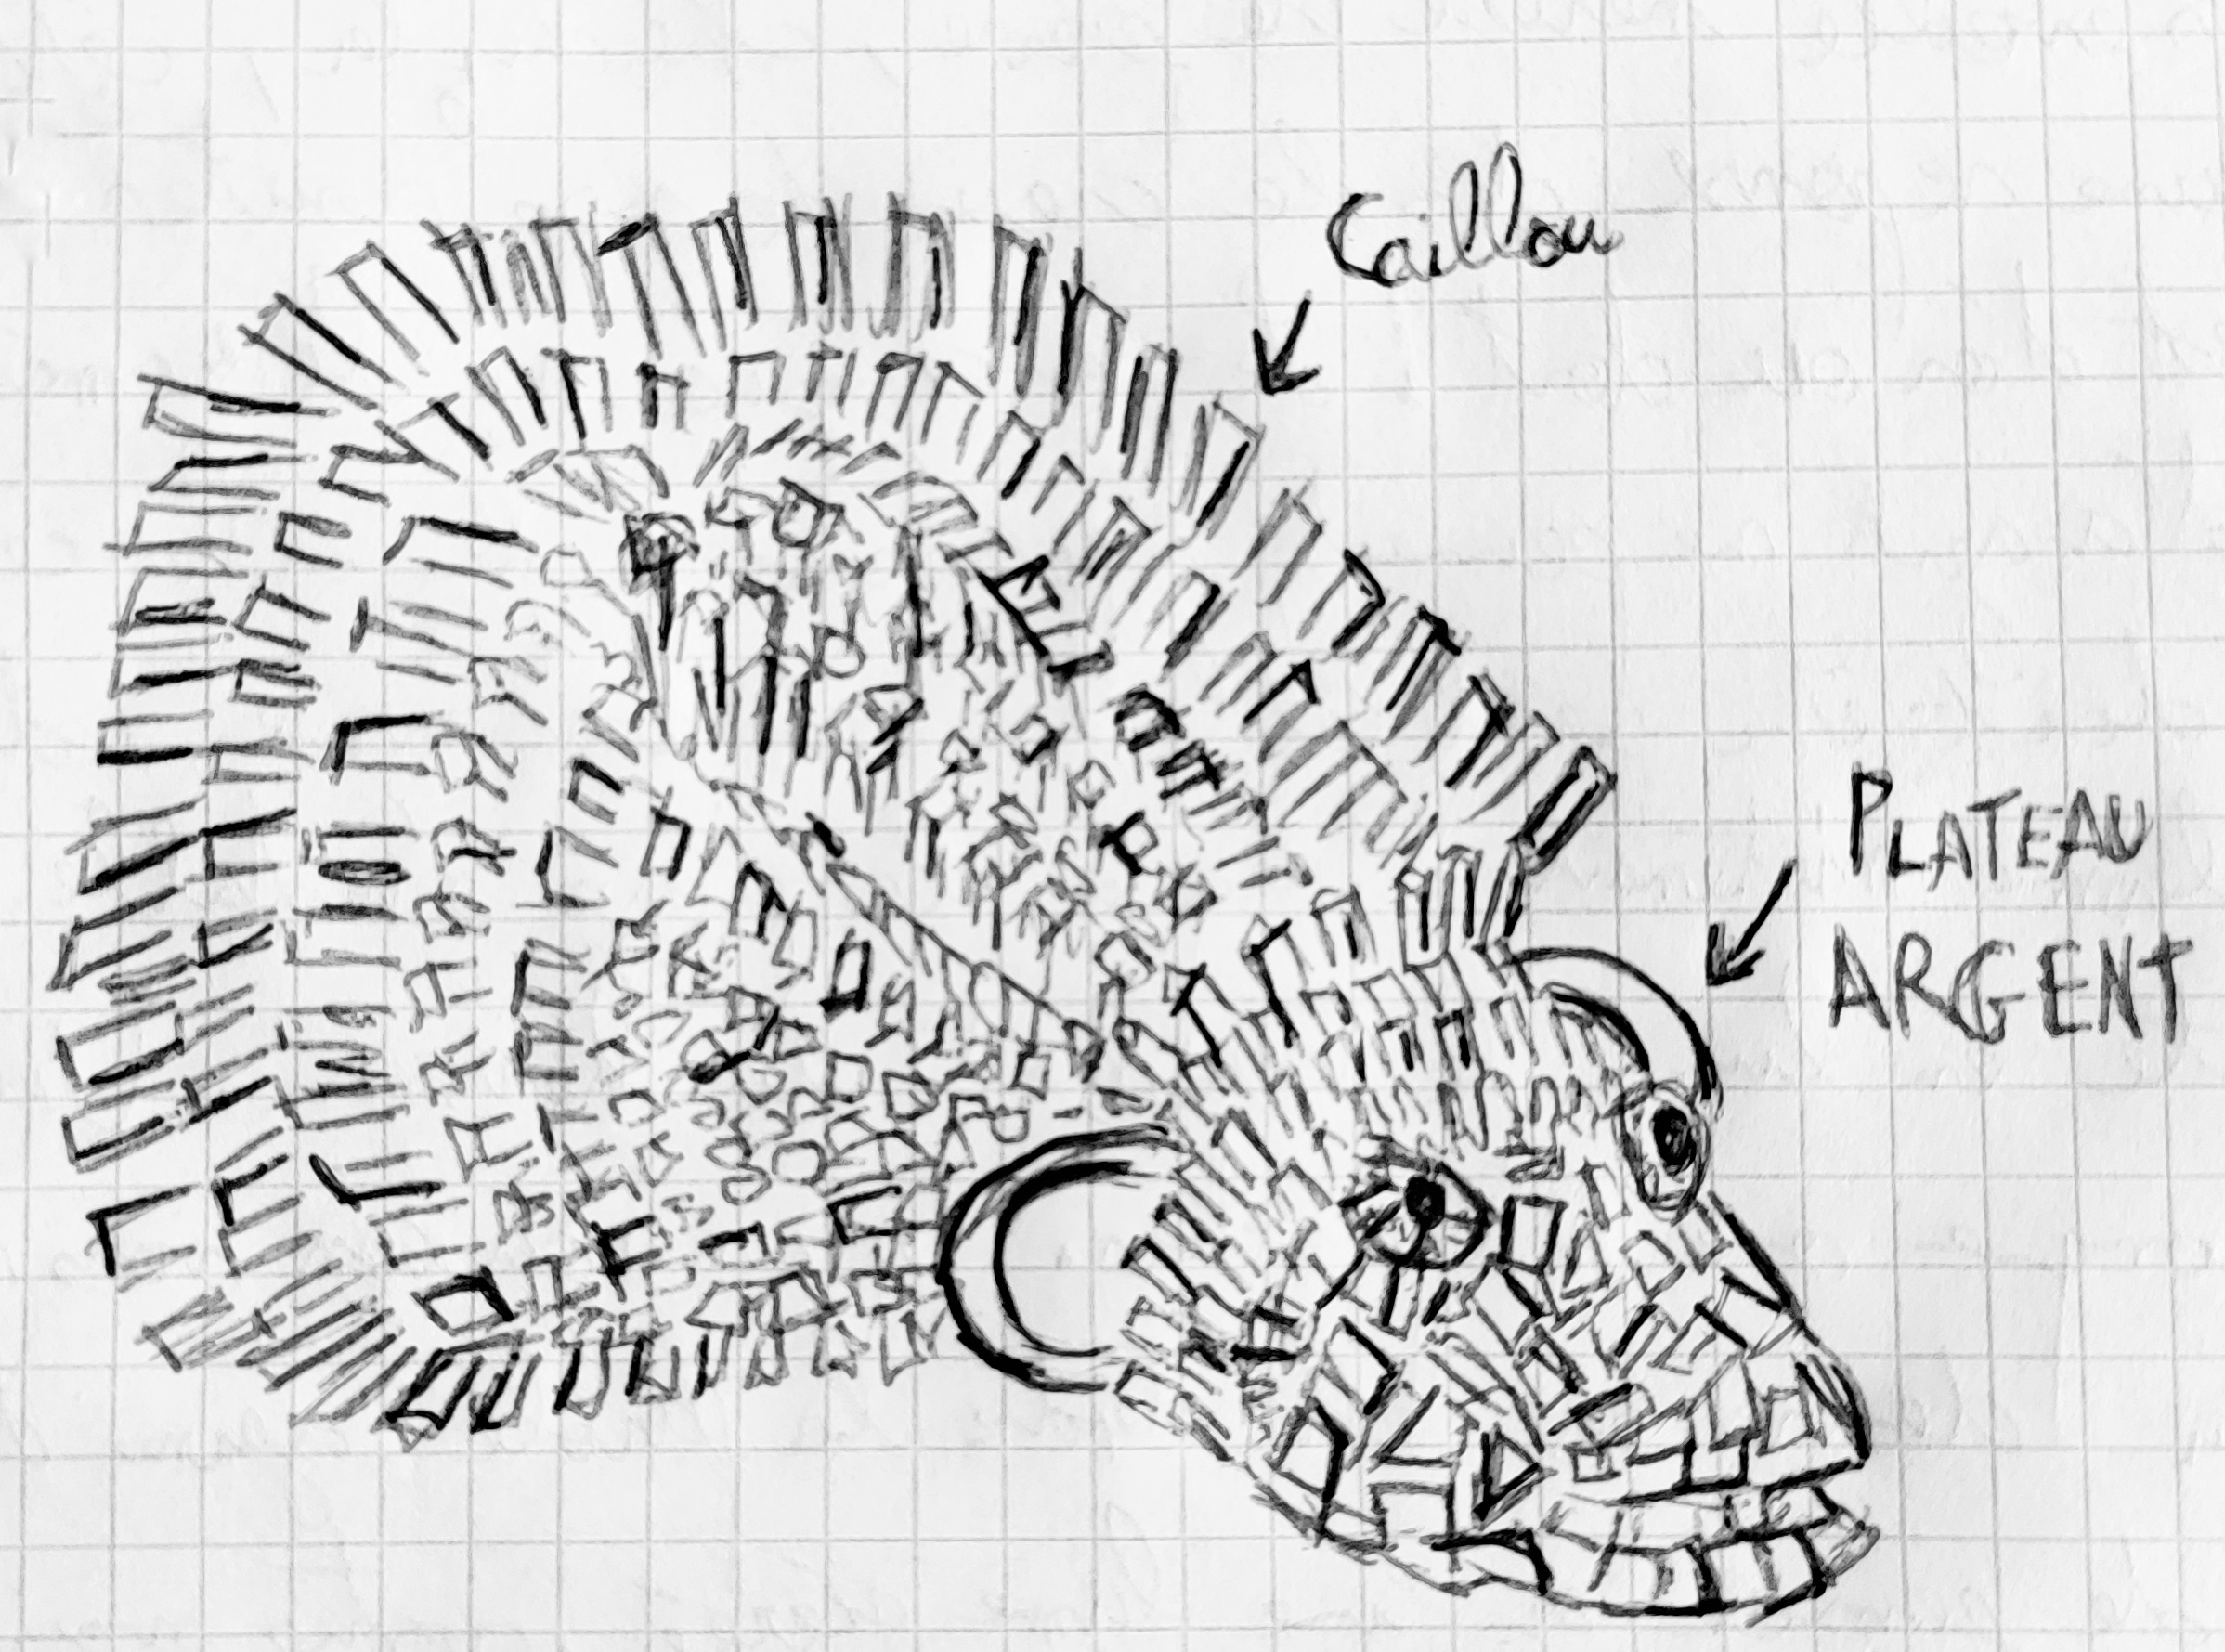 Caillou
PLATEAU
ARGENT